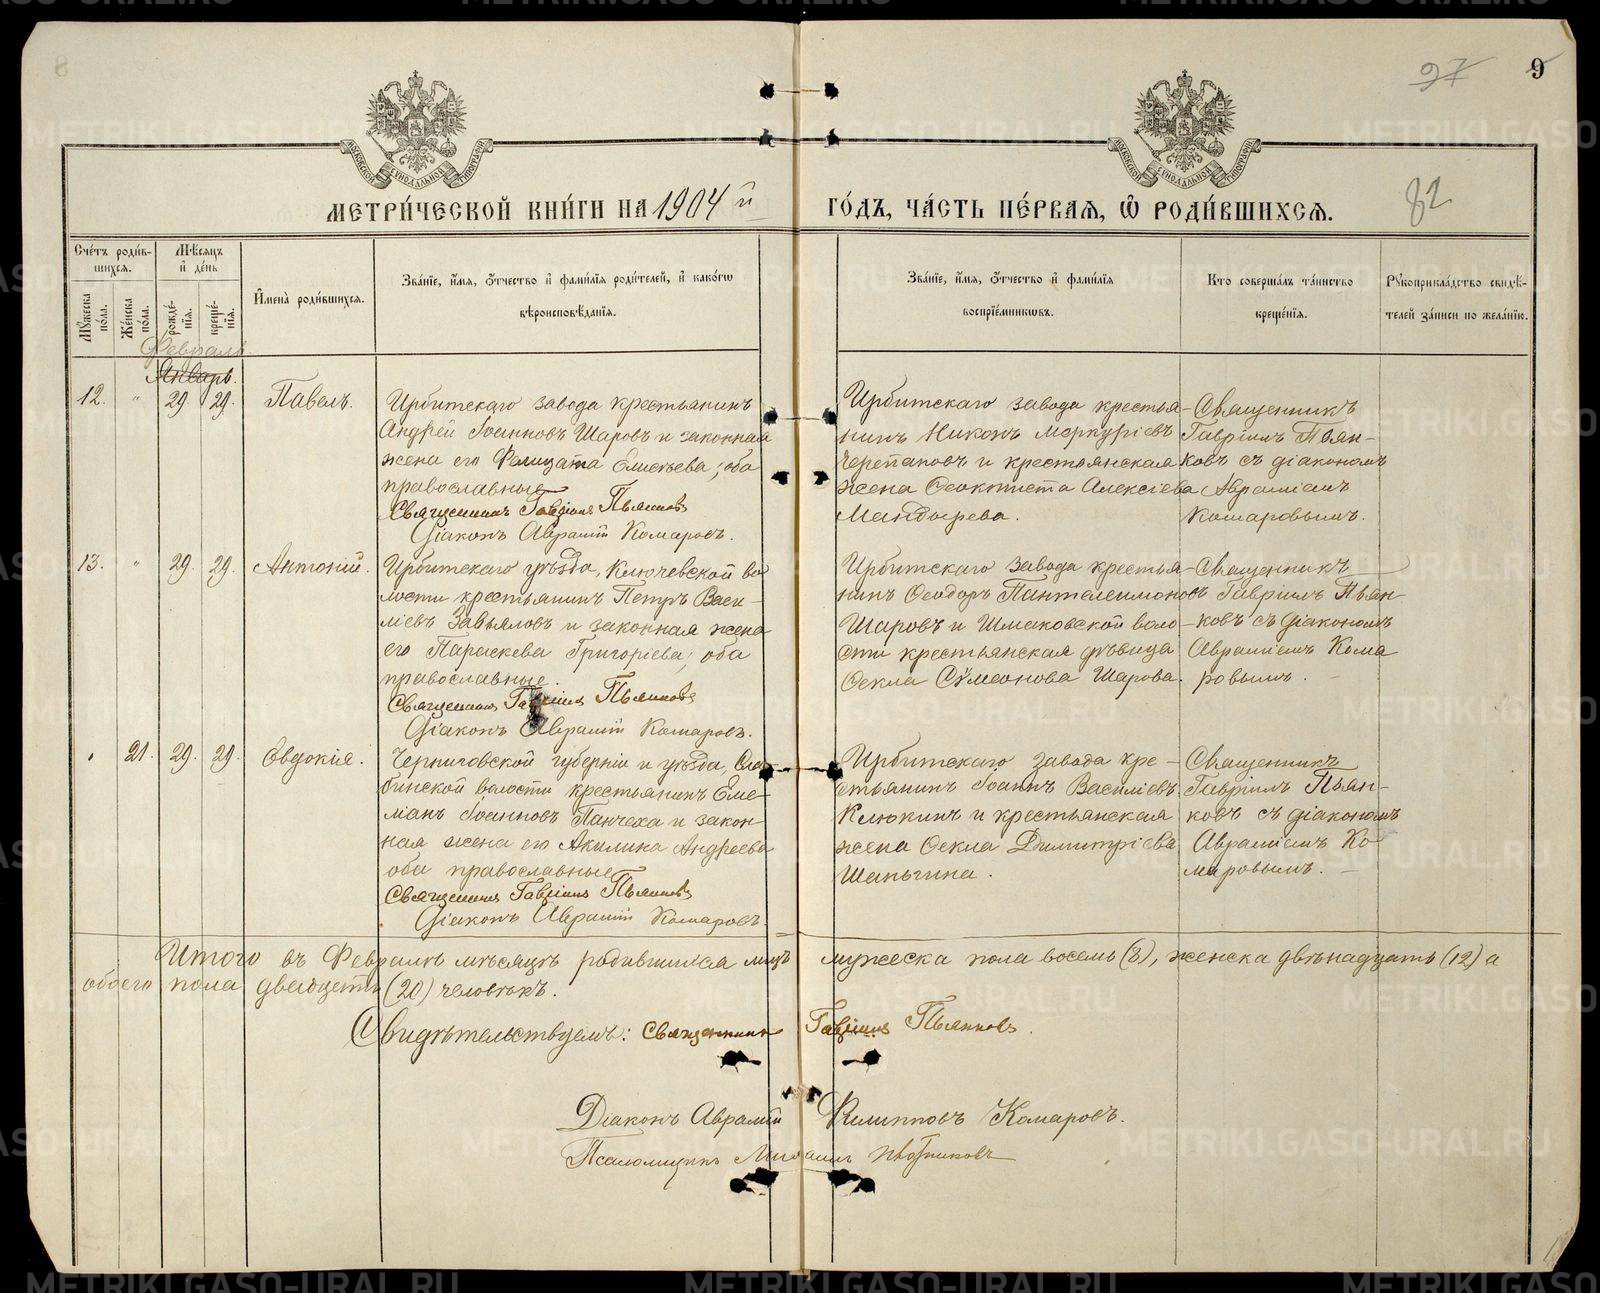 8
97
9
МЕТРИ́ЧЕСКОЙ КНИ́ГИ НА 1904й ГО́ДЪ, ЧА́СТЬ ПЕ́РВАѦ, Ѡ РОДИ́ВШИХСѦ.
82
Сче́тъ роди́в-
шихсѧ.
Мѣ́сѧцъ
и҆ де́нь
Мꙋ́жеска по́ла.
Же́нска по́ла.
рожде́-
нїѧ.
креще́-
нїѧ.
И҆мена̀ роди́вшихсѧ.
Зва́нїе, и҆́мѧ, ѻ҆́тчество и҆ фами́лїѧ роди́телей, и҆ како́гѡ
вѣроисповѣ́данїѧ.
Зва́нїе, и҆́мѧ, ѻ҆́тчество и҆ фами́лїѧ
воспрїе́мникѡвъ.
Кто соверша́лъ та́инство
креще́нїѧ.
Рꙋкоприкла́дство свидѣ́-
телей за́писи по жела́нїю.
Февраль
Январь.
12. " 29 29. Павелъ.
Ирбитскаго завода крестьянинъ
Андрей Іоанновъ Шаровъ и законная
жена его Фелицата Елисѣева; оба
православные
Священникъ Гавріилъ Пьянковъ
Діаконъ Аврамій Комаровъ.
Ирбитскаго завода крестья-
нинъ Никонъ Меркуріевъ
Черепановъ и крестьянская
жена Ѳеоктиста Алексіева
Мандырева.
Священникъ
Гавріилъ Пьян-
ковъ съ діакономъ
Авраміемъ
Комаровымъ.
13. " 29. 29. Антоній.
Ирбитскаго уѣзда, Ключевской во
лости крестьянинъ Петръ Васи-
ліевъ Завьяловъ и законная жена
его Параскева Григоріева; оба
православные.
Священникъ Гавріилъ Пьянковъ
Діаконъ Аврамій Комаровъ.
Ирбитскаго завода крестья-
нинъ Ѳеодоръ Панталеимоновъ
Шаровъ и Шмаковской воло-
сти крестьянская дѣвица
Ѳекла Сѵмеонова Шарова.
Священникъ
Гавріилъ Пьян
ковъ съ діакономъ
Авраміемъ Кома
ровымъ.
" 21. 29. 29. Евдокія.
Черниговской губерніи и уѣзда, Сла
бинской волости крестьянинъ Еме-
ліанъ Іоанновъ Панчеха и закон-
ная жена его Акилина Андреева
оба православные
Священникъ Гавріилъ Пьянковъ
Діаконъ Аврамій Комаровъ.
Ирбитскаго завода кре-
стьянинъ Іоаннъ Василіевъ
Клюкинъ и крестьянская
жена Ѳекла Димитріева
Шаньгина.
Священникъ
Гавріилъ Пьян-
ковъ съ діакономъ
Авраміемъ Ко
маровымъ.
Итого въ Февралѣ мѣсяцѣ родившихся лицъ мужеска пола восемь (8), женска двѣнадцать (12) а
обоего пола двадцать (20) человѣкъ.
Свидѣтельствуемъ: Священникъ Гавріилъ Пьянковъ.
Діаконъ Аврамій Филипповъ Комаровъ.
Псаломщикъ Михаилъ
METRIKI.GASO-URAL.RU